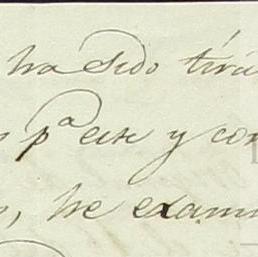 ha sido tirá
pª este y con
he exami